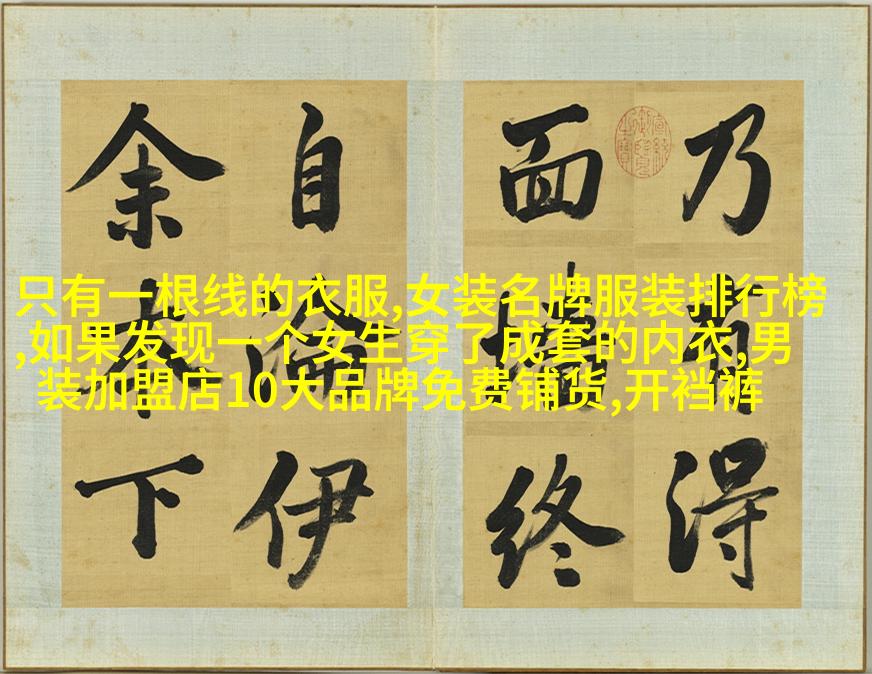 乃得
面墻終
自論伊
余本下
只有一根线的衣服,女装名牌服装排行榜
,如果发现一个女生穿了成套的内衣,男
装加盟店10大品牌免费铺货,开裆裤